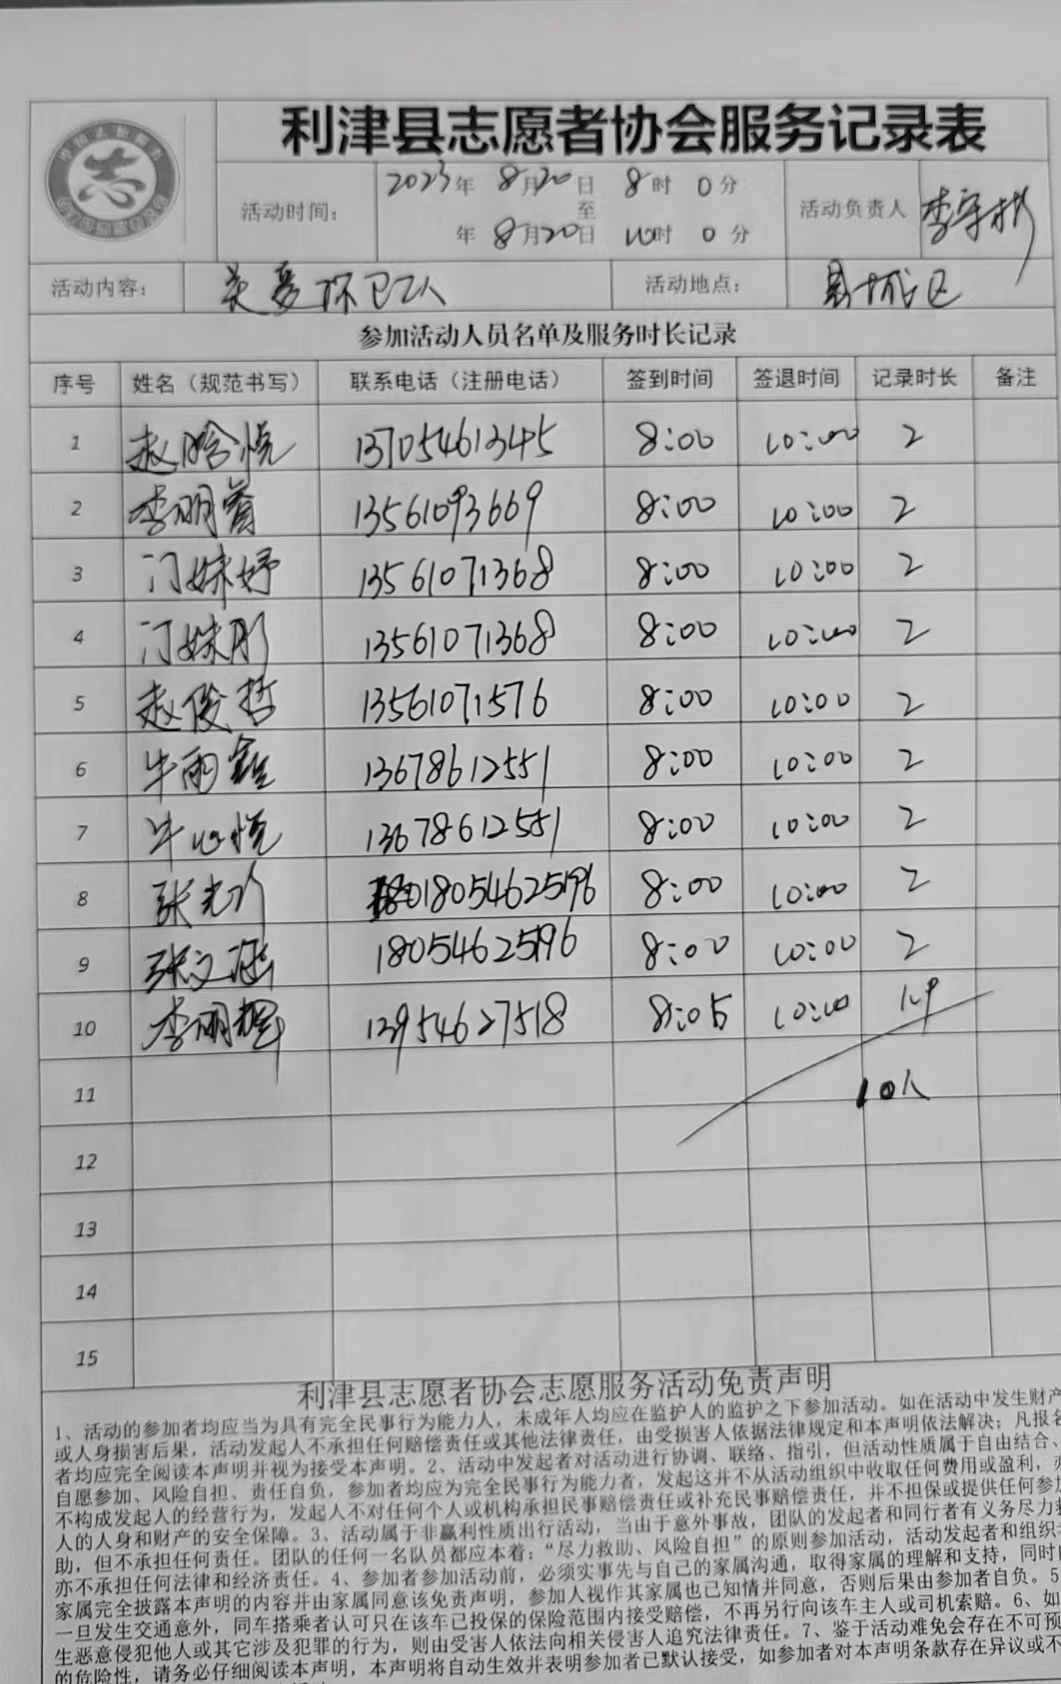 利津县志愿者协会服务记录表
活动时间： 2023年 8月20日 8时 0分
至
年 8月20日 10时 0分
活动负责人 李守彬
活动内容： 关爱环卫工人 活动地点： 县城区
参加活动人员名单及服务时长记录
序号 姓名（规范书写） 联系电话（注册电话） 签到时间 签退时间 记录时长 备注
1 赵晗悦 13705461345 8:00 10:00 2
2 李明睿 13561093669 8:00 10:00 2
3 门姝妤 13561071368 8:00 10:00 2
4 门姝彤 13561071368 8:00 10:00 2
5 赵俊哲 13561071576 8:00 10:00 2
6 牛雨鑫 13678612551 8:00 10:00 2
7 牛心悦 13678612551 8:00 10:00 2
8 张 18054625196 8:00 10:00 2
9 张文涵 18054625196 8:00 10:00 2
10 李明耀 13954627518 8:05 10:00 1.9
11 10人
12
13
14
15
利津县志愿者协会志愿服务活动免责声明
1、活动的参加者均应当为具有完全民事行为能力人，未成年人均应在监护人的监护之下参加活动。如在活动中发生财产
或人身损害后果，活动发起人不承担任何赔偿责任或其他法律责任，由受损害人依据法律规定和本声明依法解决；凡报名
者均应完全阅读本声明并视为接受本声明。2、活动中发起者对活动进行协调、联络、指引，但活动性质属于自由结合、
自愿参加、风险自担、责任自负，参加者均应为完全民事行为能力者，发起这并不从活动组织中收取任何费用或盈利，亦
不构成发起人的经营行为，发起人不对任何个人或机构承担民事赔偿责任或补充民事赔偿责任，并不担保或提供任何参加
人的人身和财产的安全保障。3、活动属于非赢利性质出行活动，当由于意外事故，团队的发起者和同行者有义务尽力救
助，但不承担任何责任。团队的任何一名队员都应本着：“尽力救助、风险自担”的原则参加活动，活动发起者和组织者
亦不承担任何法律和经济责任。4、参加者参加活动前，必须实事先与自己的家属沟通，取得家属的理解和支持，同时向
家属完全披露本声明的内容并由家属同意该免责声明，参加人视作其家属也已知情并同意，否则后果由参加者自负。5
一旦发生交通意外，同车搭乘者认可只在该车已投保的保险范围内接受赔偿，不再另行向该车主人或司机索赔。6、如
生恶意侵犯他人或其它涉及犯罪的行为，则由受害人依法向相关侵害人追究法律责任。7、鉴于活动难免会存在不可预
的危险性，请务必仔细阅读本声明，本声明将自动生效并表明参加者已默认接受，如参加者对本声明条款存在异议或不